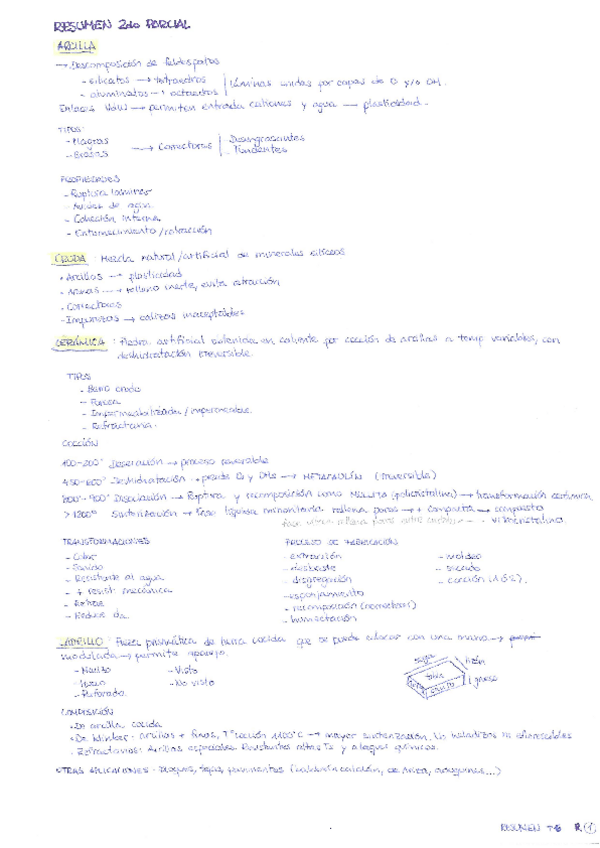 RESUMEN 2do PARCIAL
ARCILLA
→ Descomposición de feldespatos
- silicatos → tetraedros
- aluminatos → octaedros
láminas unidas por capas de O y/o OH.
Enlaces VdW → permiten entrada cationes y agua → plasticidad.
TIPOS:
- Magras
- Grasas
→ Correctores
Desengrasantes
- Fundentes
PROPIEDADES
- Ruptura laminar
- Avidez de agua
- Cohesión interna
- Entumecimiento/retracción
CRUDA: Mezcla natural/artificial de minerales silíceos
• Arcillas → plasticidad
• Arenas → relleno inerte, evita retracción
- Correctores
- Impurezas → calizas inaceptables
CERÁMICA: Piedra artificial obtenida en caliente por cocción de arcillas a temp variables, con
deshidratación irreversible
TIPOS
- Barro crudo
- Porosa
- Impermeabilizada/impermeable.
- Refractaria.
COCCIÓN
100-200° Desecación → proceso reversible
450-600° Deshidratación → pierde → METACAOLÍN (irreversible)
800°-900° Disociación → Ruptura y recomposición como MULLITA (policristalina) → transformación cerámica
>1200° Sinterización → Fase líquida minoritaria rellena poros → + compacta → compuesto
fase vítrea rellena poros entre
TRANSFORMACIONES
- Color
- Sonido
- Resistente al agua
- + resist. mecánica
- Reduce
PROCESO DE FABRICACIÓN
- extracción
- desbaste
- disgregación
- esponjamiento
- recomposición (correctores)
- humectación
- moldeo
- secado
- cocción
LADRILLO: Pieza prismática de tierra cocida que se puede colocar con una mano →
modulada → permite aparejo.
- Macizo
- Hueco
- Perforado.
- Visto
- No visto
soga
tizón
tabla
canto
grueso
COMPOSICIÓN
• De arcilla cocida
• De Klinker: arcillas + finas, T° cocción 1100°C → mayor sinterización. No heladizos ni eflorescibles
- Refractarios: Arcillas especiales. Resistentes altas Ts y ataques químicos.
OTRAS APLICACIONES: Bloques, tejas, pavimentos
RESUMEN T-6 R 1